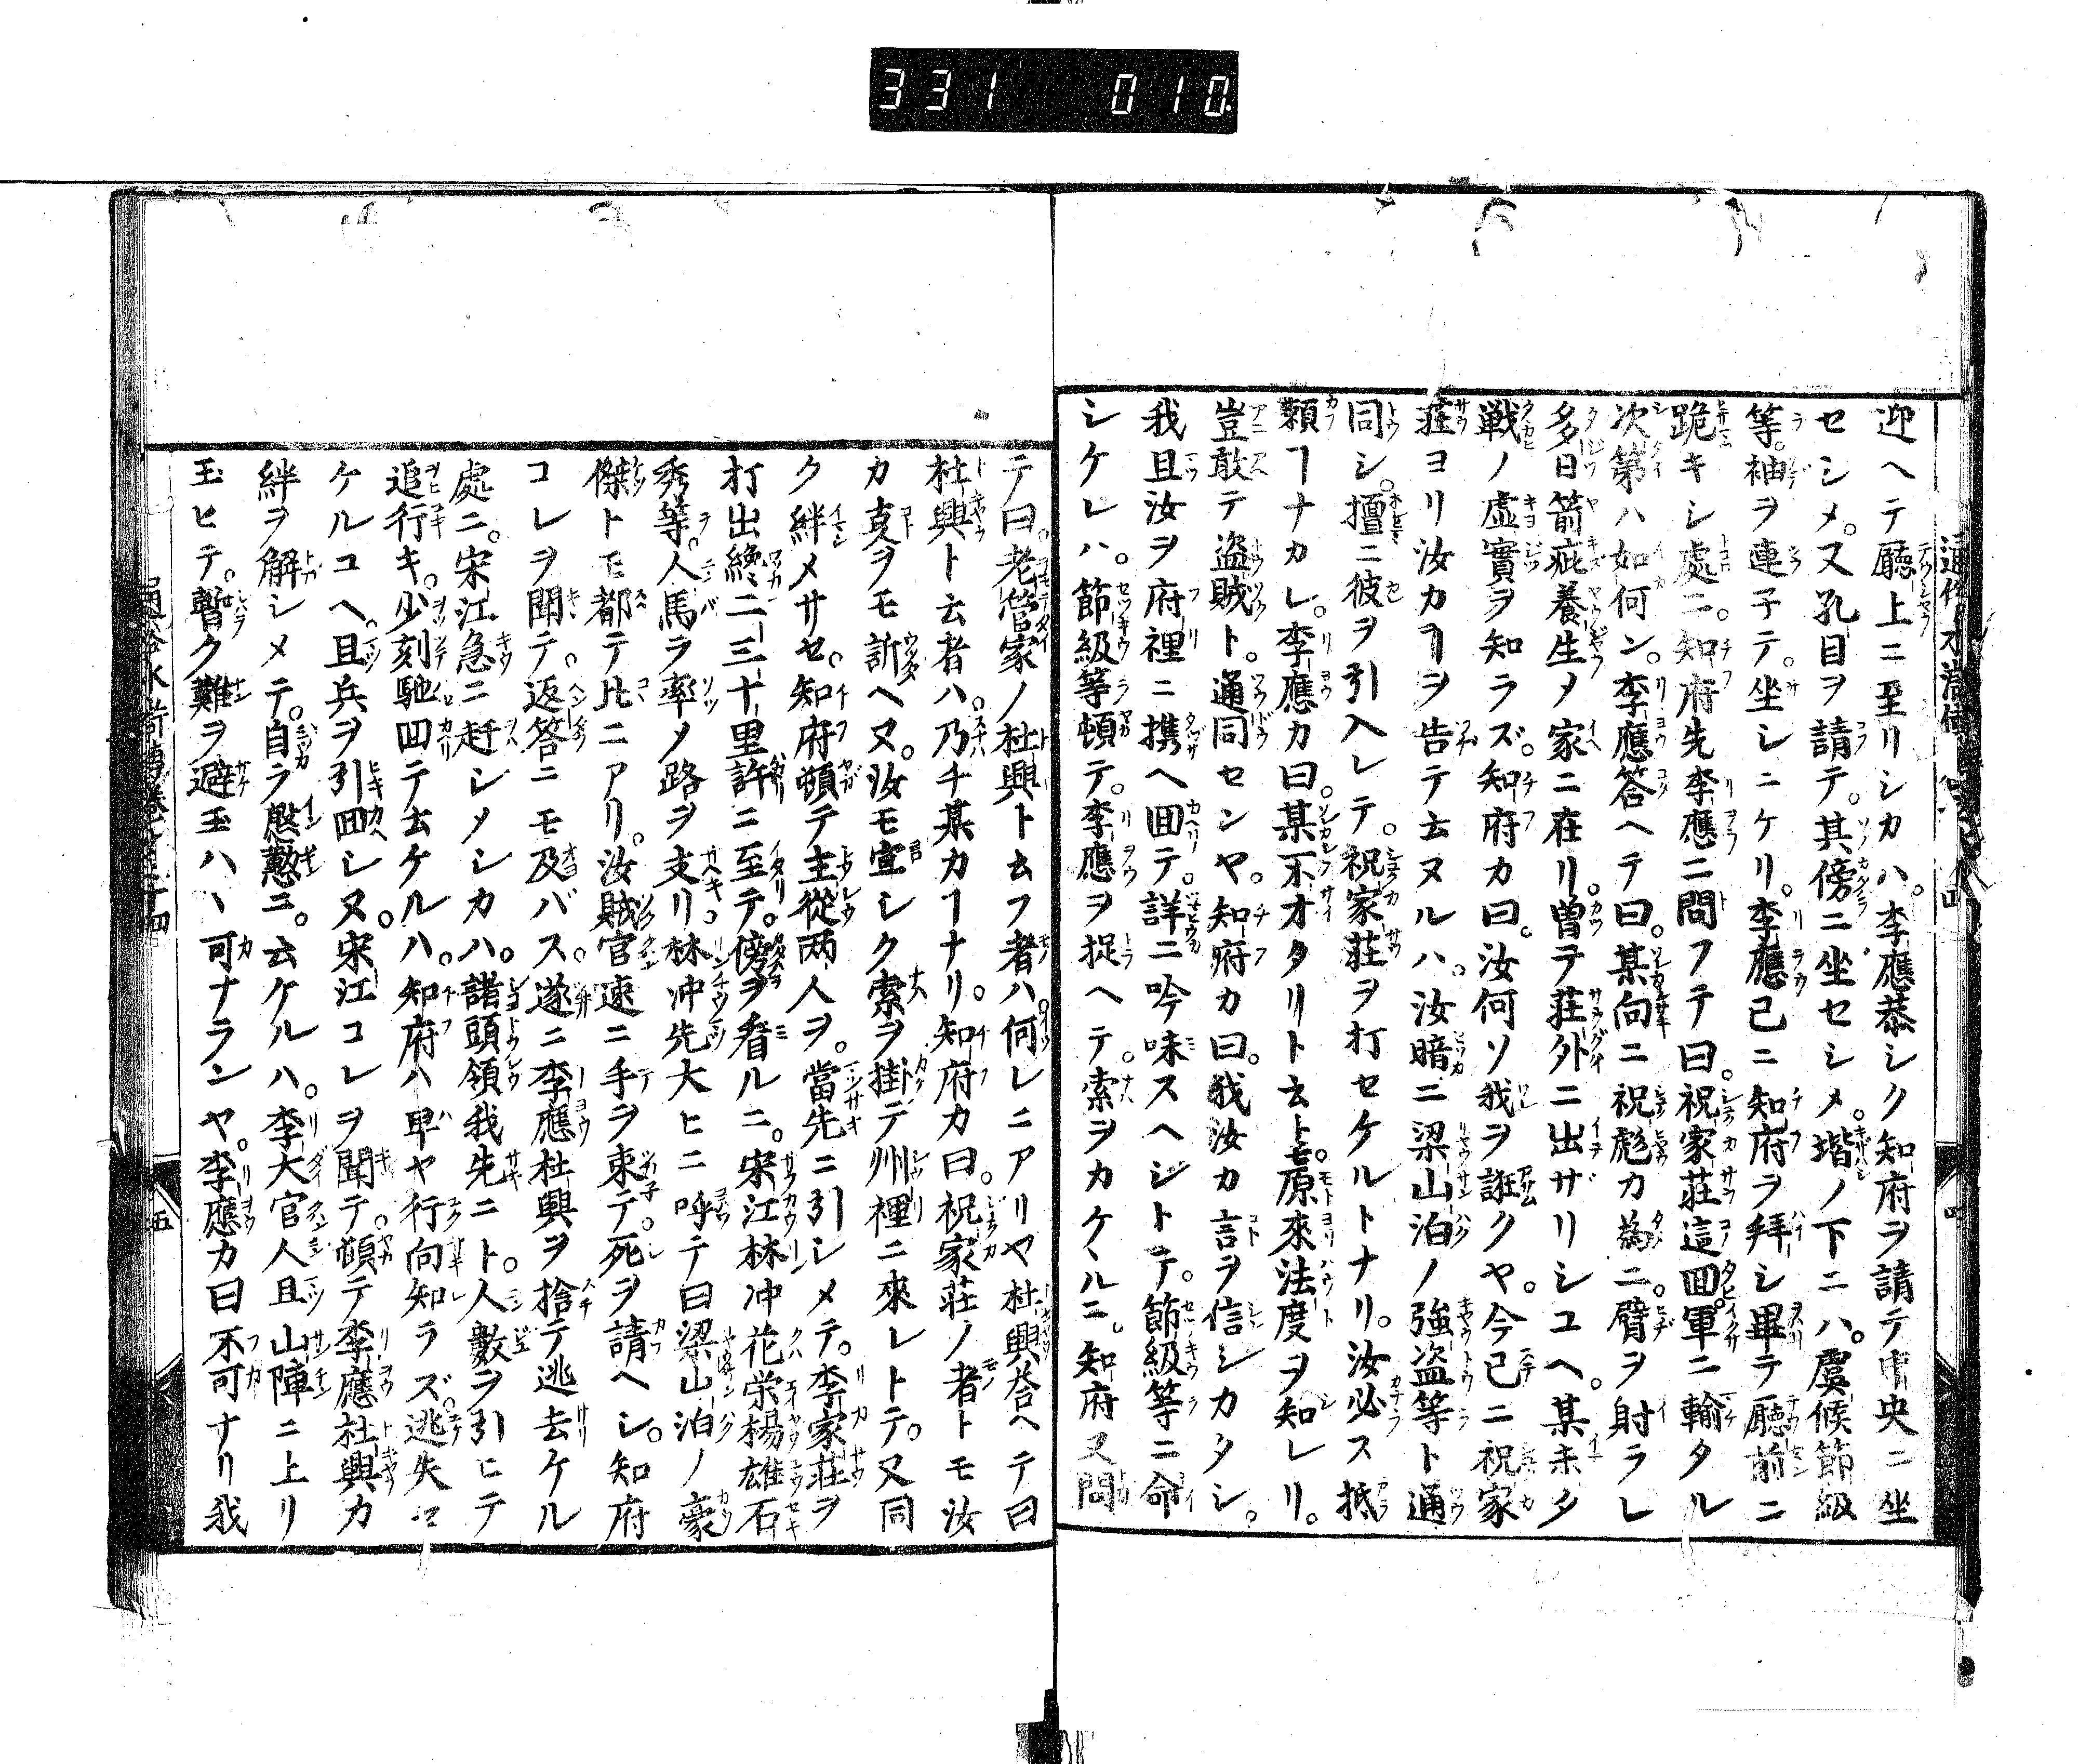 331 010
迎ヘテ廳上ニ至リシカハ。李應恭シク知府ヲ請テ中央ニ坐
セシメ。又孔目ヲ請テ。其傍ニ坐セシメ。堦ノ下ニハ。虞候節級
等。袖ヲ連子テ。坐シニケリ。李應已ニ知府ヲ拜シ畢テ廳前ニ
跪キシ處ニ。知府先李應ニ問フテ曰。祝家莊這囬。軍ニ輸タル
次第ハ如何ン。李應答ヘテ曰。某向ニ祝彪カ為ニ。臂ヲ射ラレ
多日箭疵養生メ家ニ在リ。曽テ莊外ニ出ザリシユヘ。某未タ
戦ノ虚實ヲ知ラズ。知府カ曰。汝何ソ我ヲ誑クヤ。今已ニ祝家
莊ヨリ汝カヿヲ告テ去ヌルハ。汝暗ニ梁山泊ノ強盗等ト通
同シ。擅ニ彼ヲ引入レテ。祝家莊ヲ打セケルトナリ。汝必ス抵
頼ヿナカレ。李應カ曰。某不オタリト云𪜈。原來法度ヲ知レリ。
豈敢テ盗賊ト。通同センヤ。知府カ曰。我汝カ言ヲ信シカタシ。
我且汝ヲ府裡ニ携ヘ囬テ。詳ニ吟味スヘシトテ。節級等ニ命
シケレハ。節級等頓テ。李應ヲ捉ヘテ。索ヲカケヽルニ。知府又問
テ曰。老管家ノ杜興ト云フ者ハ。何レニアリヤ杜興荅ヘテ曰
杜興ト云者ハ。乃チ某カヿナリ。知府カ曰。祝家莊ノ者トモ汝
カ㕝ヲモ訴ヘヌ。汝モ宜シク索ヲ掛テ州裡ニ來レトテ。又同
ク絆メサセ。知府頓テ主從两人ヲ。當先ニ引シメテ。李家莊ヲ
打出纔ニ二三十里許ニ至テ。傍ヲ看ルニ。宋江林冲花栄楊雄石
秀等。人馬ヲ率メ路ヲ支リ。林冲先大ヒニ呼テ曰梁山泊ノ豪
傑トモ都テ比ニアリ。汝賊官速ニ手ヲ束テ。死ヲ請ヘシ。知府
コレヲ聞テ。返答ニモ及バス。遂ニ李應杜興ヲ捨テ逃去ケル
處ニ。宋江急ニ赶シメシカハ。諸頭領我先ニト。人數ヲ引ヒテ
追行キ。少刻馳囬テ云ケルハ。知府ハ早ヤ行向知ラズ。逃失セ
ケルユヘ。且兵ヲ引囬シヌ。宋江コレヲ聞テ。頓テ李應杜興カ
絆ヲ解シメテ。自ラ慇懃ニ。云ケルハ。李大官人且山陣ニ上リ
玉ヒテ。暫ク難ヲ避玉ハヽ可ナランヤ。李應カ曰不可ナリ我